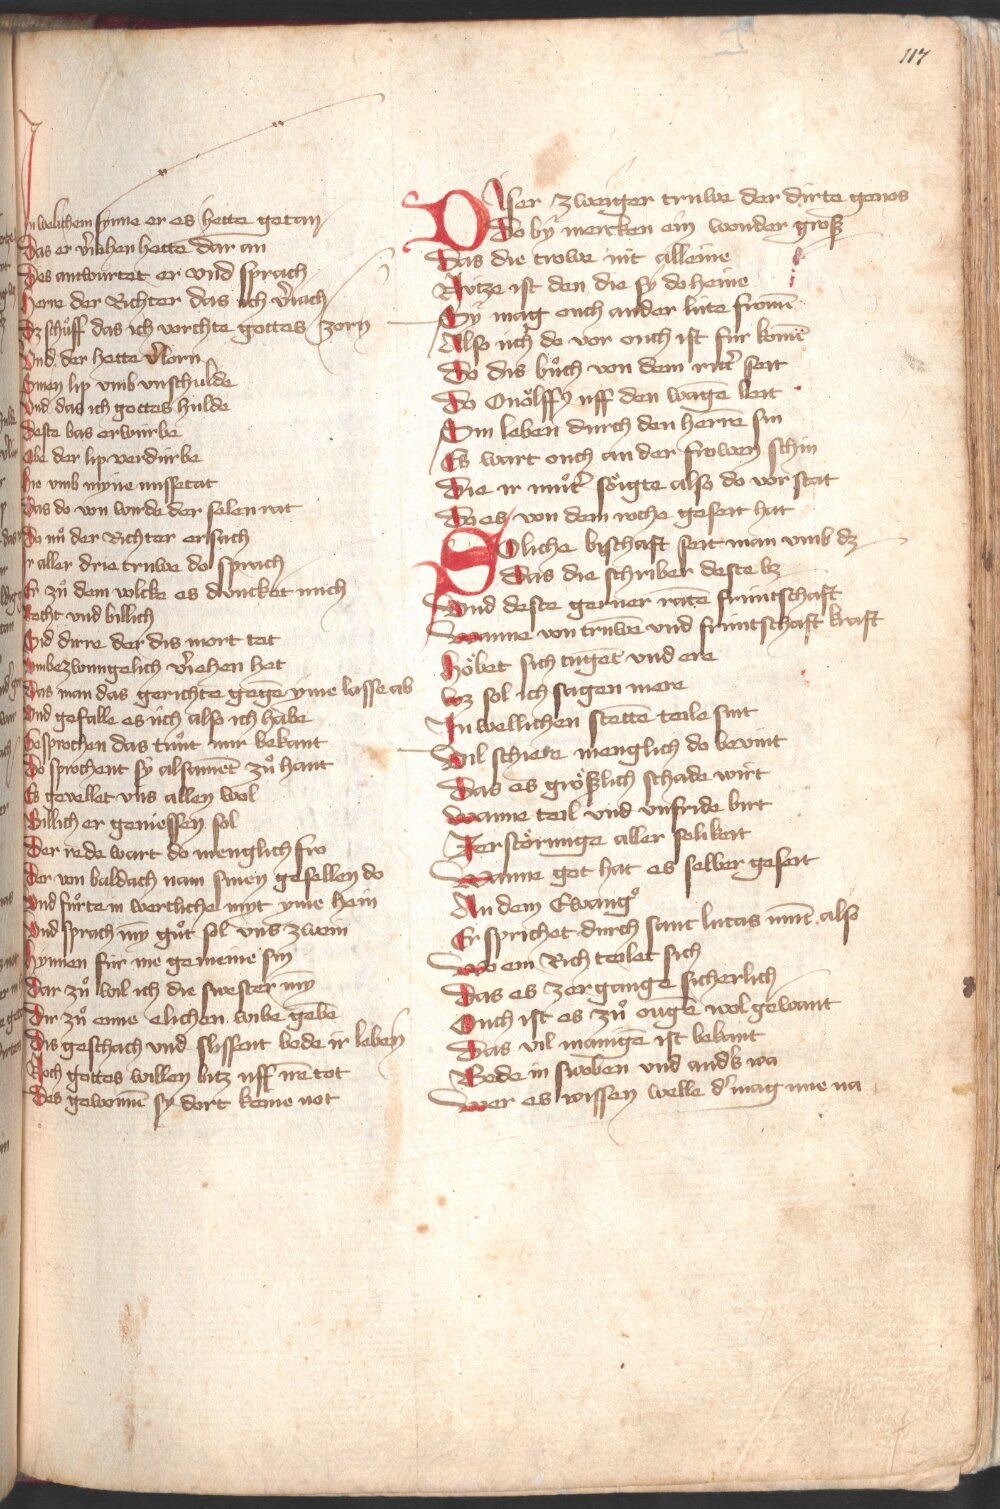 117
In welichem synne er es hette getan
Das er v̾iehen hette dar an
Des antwurtet er vnd sprach
Herre der Richter das ich v̾iach
Dz schuͦff das ich vorchte gottes zorn
Vnd der hette v̾lorn
Sinen lip vmb vnschulde
Vnd das ich gottes hulde
Deste bas erwurbe
Obe der lip verdurbe
Hie vmb myne missetat
Das do von wurde der selen rat
Do nuͦ der Richter ersach
Ir aller drie truwe do sprach
Er zuͦ dem volcke es duncket mich
Recht vnd billich
Sid dirre der dis mort tet
Vnbezwungelich v̾iehen het
Das man das gerichte gegē yme lasse ab
Vnd gefalle es uch also ich habe
Gesprochen das tuͦnt mir bekant
Do sprochent sy alsament zuͦ hant
Es gevellet vns allen wol
Billich er geniessen sol
Der rede wart do menglich fro
Der von baldach nam sinen gesellen do
Vnd fuͦrte in wertliche myt yme hein
Vnd sprach my guͦt sol vns zwein
Hynnen fur me gemeine sin
Dar zuͦ wil ich die swester my
Dir zuͦ eime elichen wibe gebē
Dis geschach vnd slissent bede ir leben
Noch gottes willen bitz uff ire tot
Des gewonnē sy dort keine not
Diser zweiger truwe der dirte genos
Do by mercken ein wonder groß
Das die trowe nit alleine
Nutze ist den die sy do heime
Sy mag ouch ander lute fromē
Also uch do vor ouch ist fur komē
Do dis buͦch von dem rittͬ seit
Do Onoͤlffy uff den wagē leit
Sin leben durch den herrē sin
Es wart ouch an der frowen schin
Die ir muͦtͬ soͤigte also do vor stat
Do es von dem roche geseit hat
Soliche bischaft seit man vmb dz
Das die schriber deste bz
Vnd deste gerner ratē fruntschaft
Wanne von truwē vnd fruntschaft kraft
Hoͤbet sich tugēt vnd ere
Wz sol ich sagen mere
In wellichen stettē teile sint
Vil schiere menglich do bevint
Das es groͤßlich schade wirt
Wanne teil vnd vnfride birt
Zerstoͤrunge aller selikeit
Wanne got hat es selber geseit
An dem Ewangͦ
Er sprichet durch sant lucas munt also
Wo ein Rich teilet sich
Das es zergange sicherlich
Ouch ist es zuͦ ougē wol gewant
Das vil manigē ist bekant
Bede in swoben vnd anders wa
Wer es wissen welle dͬ mag ime na